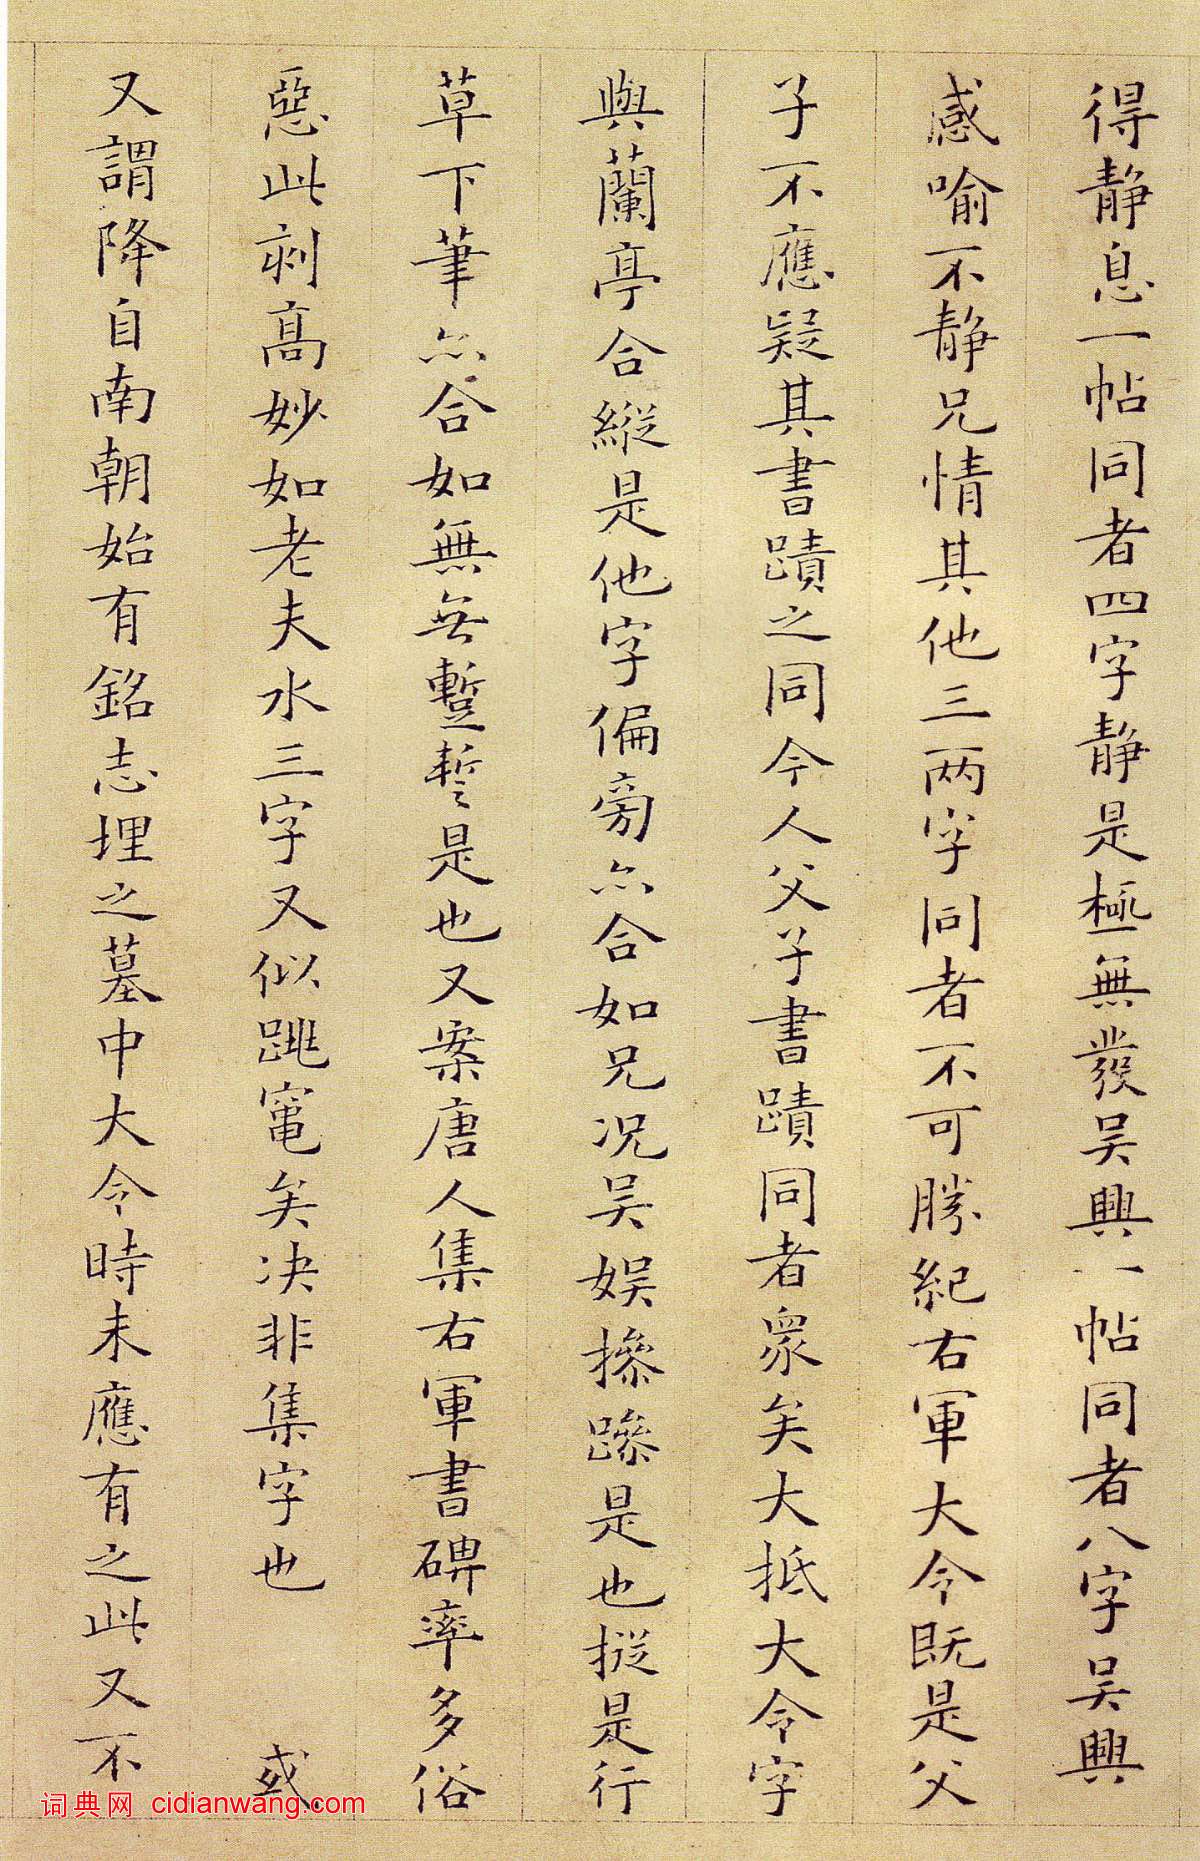 得静息一帖同者四字静是極無發吴興一帖同者八字吴興
感喻不静兄情其他三两字同者不可勝紀右軍大令既是父
子不應疑其書蹟之同今人父子書蹟同者衆矣大抵大令字
與蘭亭合縱是他字偏旁亦合如兄况吴娱摻蹤是也摐是行
草下筆亦合如無無蹔誓是也又案唐人集右軍書碑率多俗
惡此刻高妙如老夫水三字又似跳竃矣决非集字也 或
又謂降自南朝始有銘志埋之墓中大令時未應有之此又不
词典网 cidianwang.com